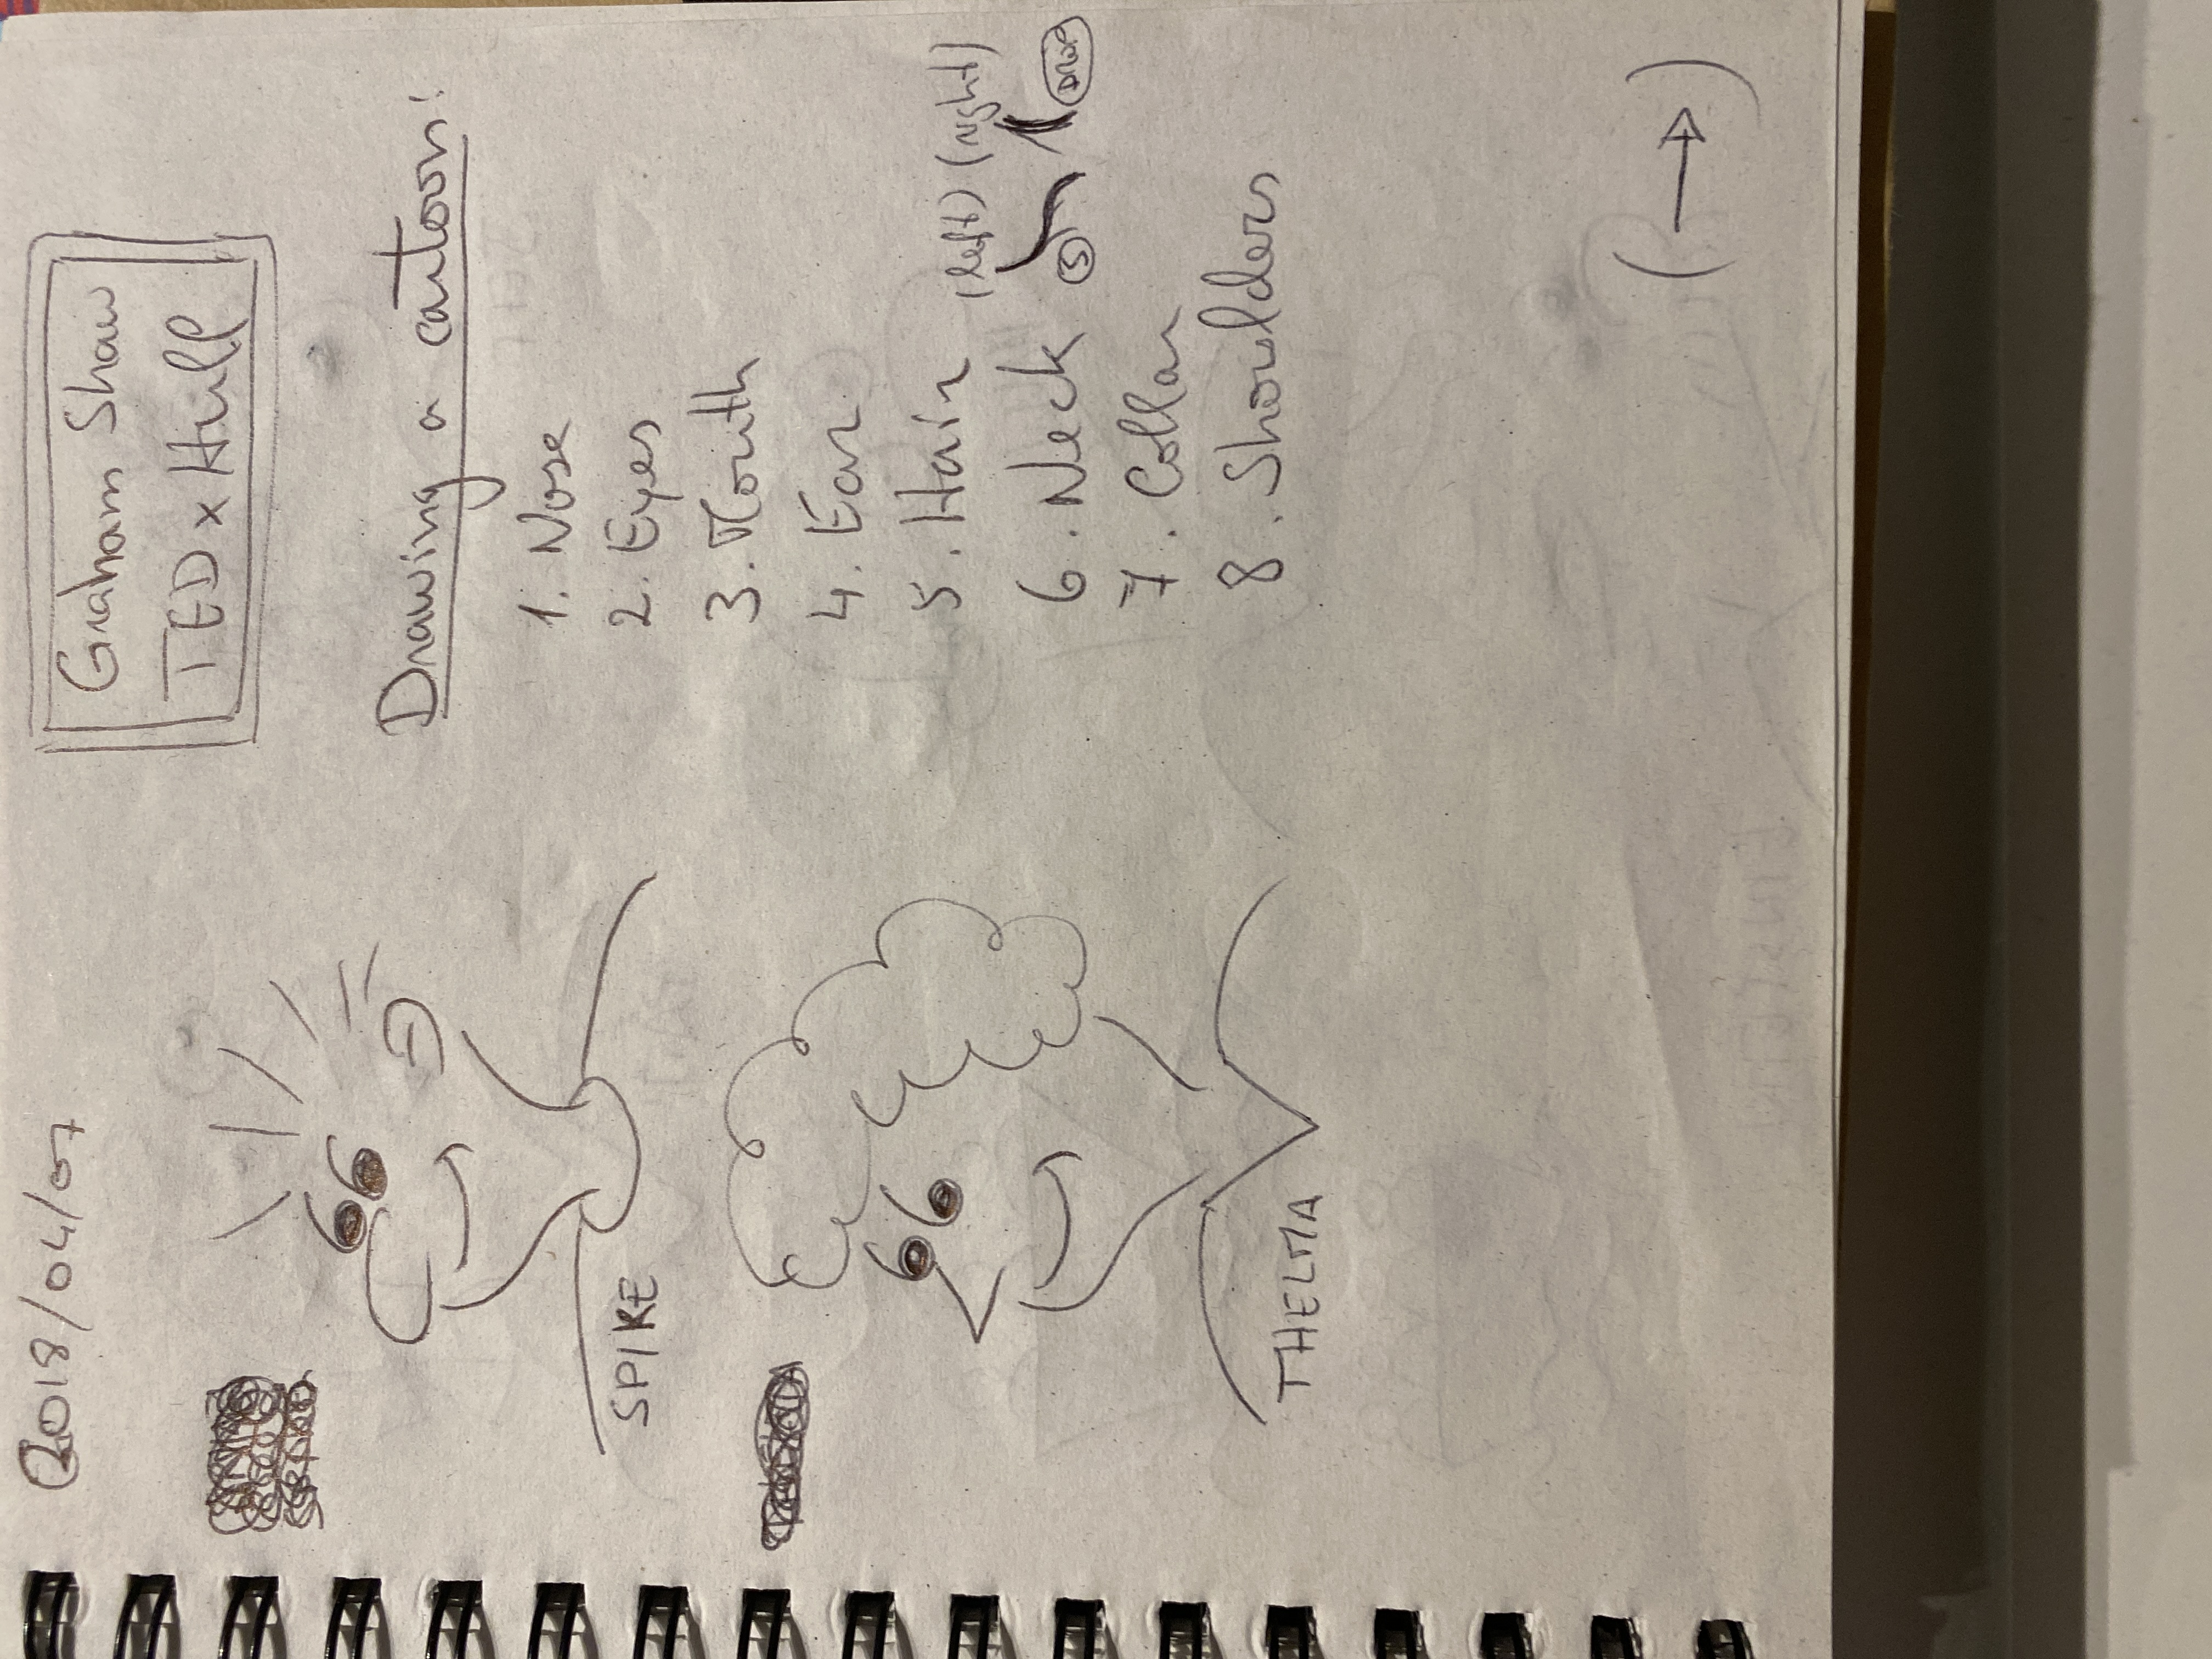 2018/04/07
Graham Shaw
TEDxHull
SPIKE
THELMA
Drawing a cartoon:
1. Nose
2. Eyes
3. Mouth
4. Ear
5. Hair
(left) (right)
6. Neck
7. Collar
8. Shoulders
EINSTEIN